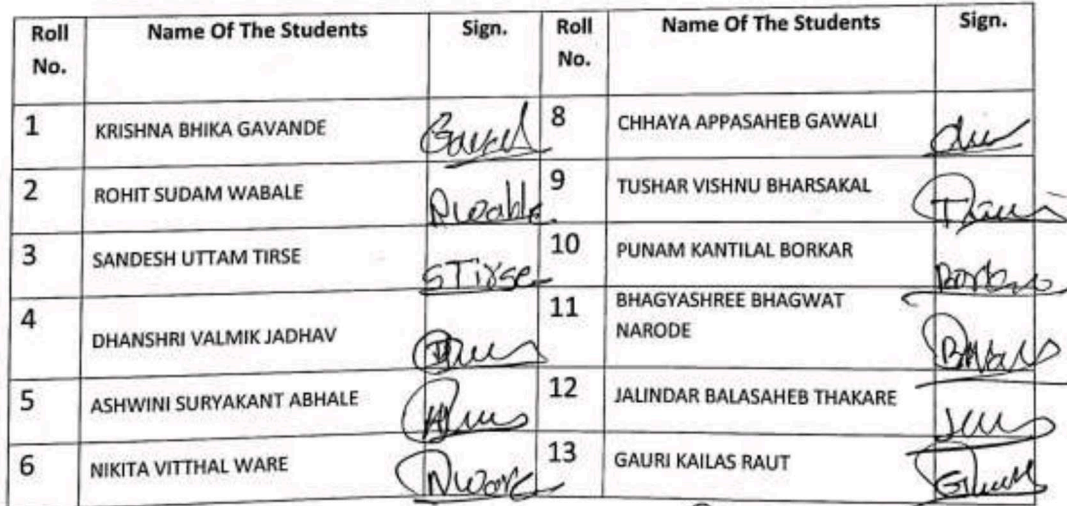 Roll No. Name Of The Students Sign. Roll No. Name Of The Students Sign.
1 KRISHNA BHIKA GAVANDE 8 CHHAYA APPASAHEB GAWALI
2 ROHIT SUDAM WABALE Rwable. 9 TUSHAR VISHNU BHARSAKAL
3 SANDESH UTTAM TIRSE STirse 10 PUNAM KANTILAL BORKAR
4 DHANSHRI VALMIK JADHAV 11 BHAGYASHREE BHAGWAT NARODE
5 ASHWINI SURYAKANT ABHALE 12 JALINDAR BALASAHEB THAKARE
6 NIKITA VITTHAL WARE Nware 13 GAURI KAILAS RAUT